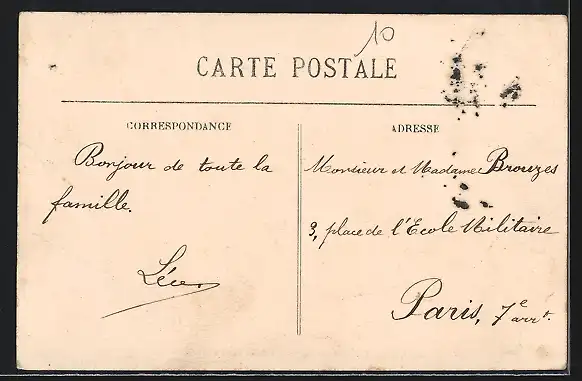 10
CARTE POSTALE
CORRESPONDANCE
ADRESSE
Bonjour de toute la
famille.
Léon
Monsieur et Madame Brouzes
3, place de l'Ecole Militaire
Paris, 7e arrt.